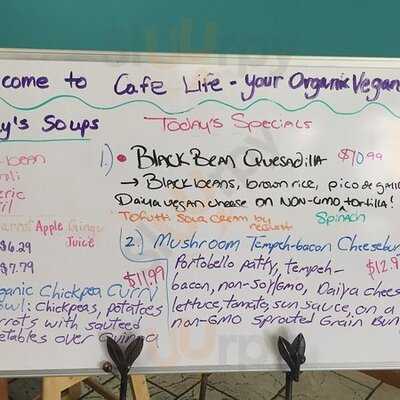 come to Cafe Life - Your Organic Vegan
y's Soups
-bean
Carrot Apple Ginger
Juice
$6.29
$7.79
$11.99
ganic Chickpea Curry
Bowl: chickpeas, potatoes
rrots with sauteed
etables over quinoa
Today's Specials
1.) • Black Bean Quesadilla $10.99
→ Black beans, brown rice, pico de gallo
Daiya vegan cheese on non-GMO tortilla!
Tofutti sour cream by request Spinach
2.) Mushroom Tempeh-bacon Cheesebur
Portobello patty, tempeh- $12.9
bacon, non-soy mayo, Daiya chees
lettuce, tomato, sun sauce, on a
non-GMO Sprouted Grain Bun